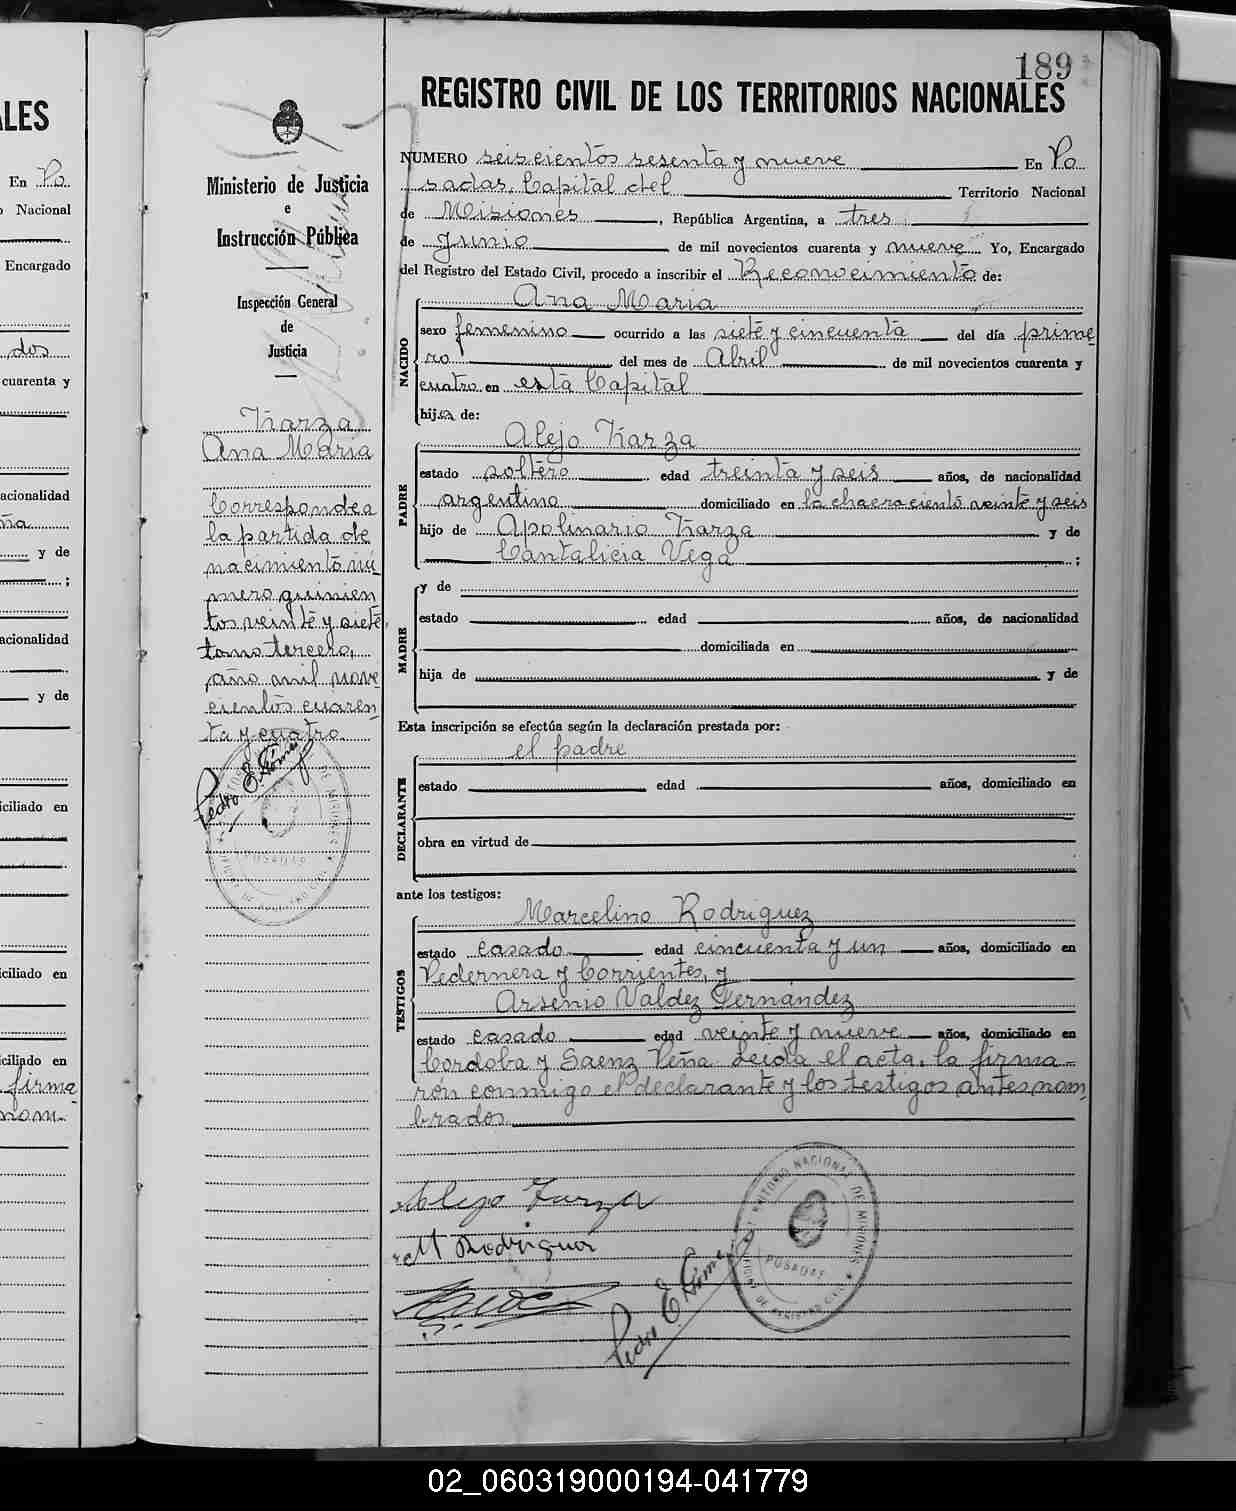 189
REGISTRO CIVIL DE LOS TERRITORIOS NACIONALES
Ministerio de Justicia
e
Instrucción Pública
Inspección General
de
Justicia
Karza
Ana María
Corresponde a
la partida de
nacimiento nú
mero quinien
tos veinte y siete
tomo tercero,
año mil nove
cientos cuaren
ta y cuatro.
Pedro E. Gómez
NUMERO seiscientos sesenta y nueve En Po
sadas, Capital del Territorio Nacional
de Misiones, República Argentina, a tres
de Junio de mil novecientos cuarenta y nueve Yo, Encargado
del Registro del Estado Civil, procedo a inscribir el Reconocimiento de:
NACIDO
Ana María
sexo femenino ocurrido a las siete y cincuenta del día prime
ro del mes de Abril de mil novecientos cuarenta y
cuatro en esta Capital
hija de:
PADRE
Alejo Karza
estado soltero edad treinta y seis años, de nacionalidad
argentina domiciliado en la chacra ciento veinte y seis
hijo de Apolinario Karza y de
Cantalicia Vega ;
MADRE
y de
estado edad años, de nacionalidad
domiciliada en
hija de y de
Esta inscripción se efectúa según la declaración prestada por:
DECLARANTE
el padre
estado edad años, domiciliado en
obra en virtud de
ante los testigos:
TESTIGOS
Marcelino Rodriguez
estado casado edad cincuenta y un años, domiciliado en
Pedernera y Corrientes, y
Arsenio Valdez Fernández
estado casado edad veinte y nueve años, domiciliado en
Cordoba y Saenz Peña. Leida el acta, la firma-
rón conmigo el declarante y los testigos antes nom
brados
Alejo Karza
M Rodriguez
Pedro E. Gómez
POSADAS
ALES
En Po
o Nacional
Encargado
dos
cuarenta y
acionalidad
ña
y de
;
acionalidad
y de
iciliado en
ciliado en
ciliado en
firma
nom-
02_060319000194-041779